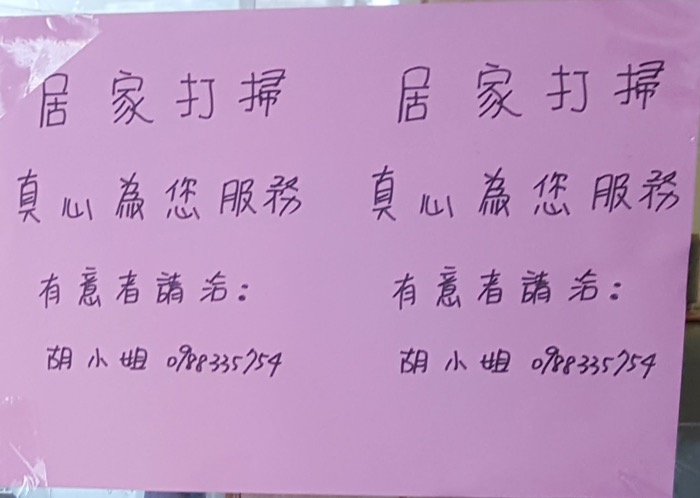 居家打掃
真心為您服務
有意者請洽：
胡小姐 0988335754
居家打掃
真心為您服務
有意者請洽：
胡小姐 0988335754